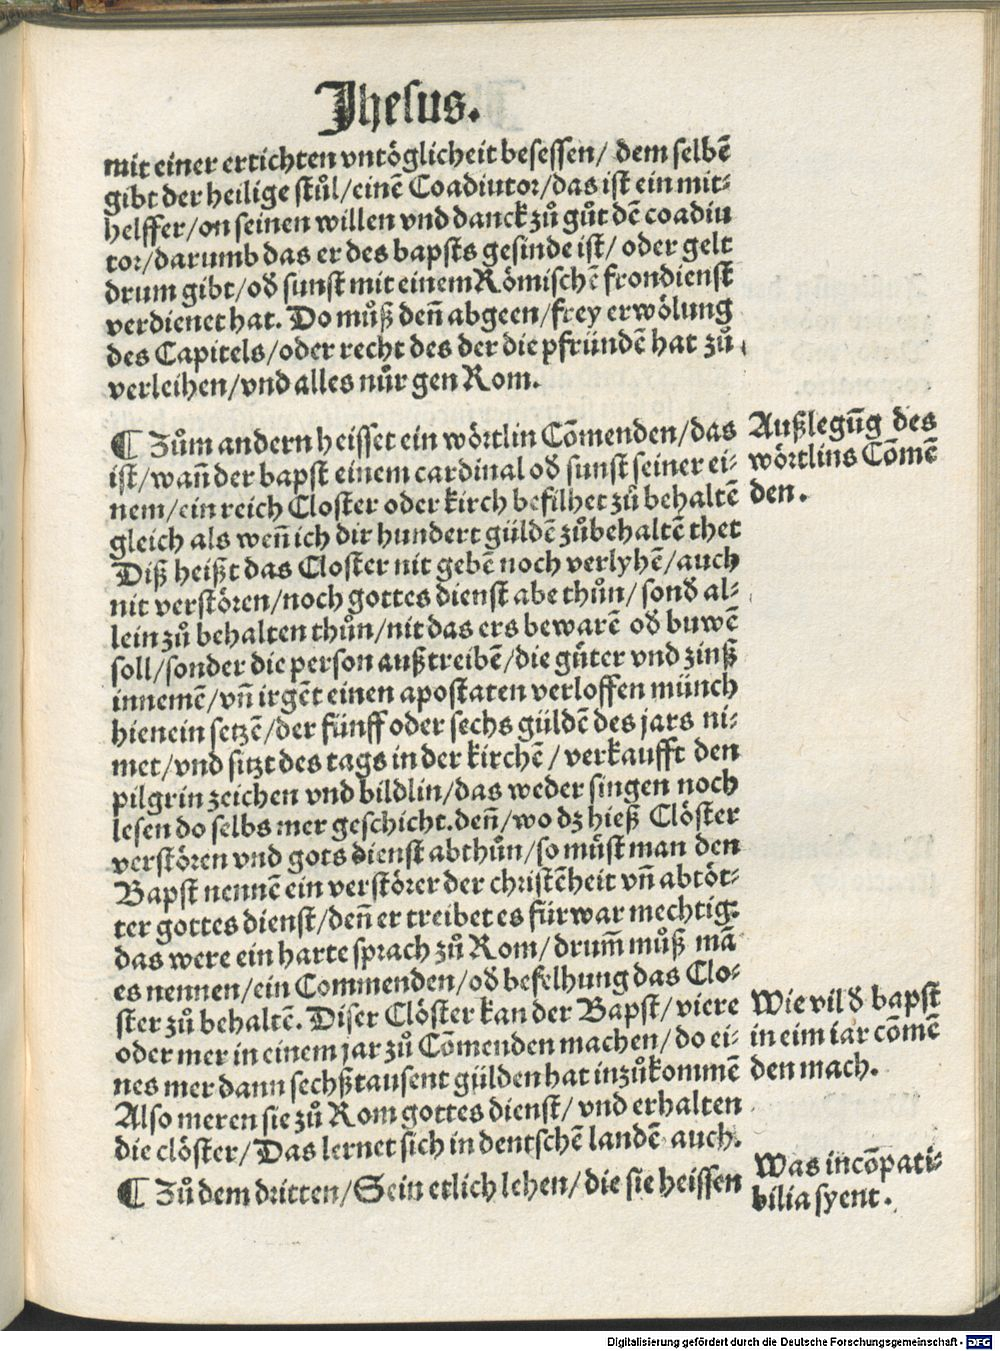 Jhesus.
mit einer ertichten vntöglicheit besessen/ dem selbē
gibt der heilige stůl/einē Coadiutor/das ist ein mit-
helffer/on seinen willen vnd danck zů gůt dē coadiu
tor/darumb das er des bapsts gesinde ist/ oder gelt
drum gibt/oď sunst mit einem Römischē frondienst
verdienet hat. Do můß deñ abgeen/frey erwölung
des Capitels/oder recht des der die pfründē hat zů
verleihen/vnd alles nůr gen Rom.
¶ Zům andern heisset ein wörtlin Cōmenden/das
ist/wañ der bapst einem cardinal oď sunst seiner ei-
nem/ein reich Closter oder kirch befilhet zů behaltē
gleich als weñ ich dir hundert güldē zůbehaltē thet
Diß heißt das Closter nit gebē noch verlyhē/auch
nit verstören/noch gottes dienst abe thůn/ sonď al-
lein zů behalten thůn/nit das ers bewarē oď buwē
soll/sonder die person außtreibē/die güter vnd zinß
innemē/vñ irgēt einen apostaten verloffen münch
hienein setzē/der fünff oder sechs güldē des jars ni-
met/vnd sitzt des tags in der kirchē/ verkaufft den
pilgrin zeichen vnd bildlin/das weder singen noch
lesen do selbs mer geschicht.deñ/wo dz hieß Clöster
verstören vnd gots dienst abthůn/so můst man den
Bapst nennē ein verstörer der christēheit vñ abtöt-
ter gottes dienst/deñ er treibet es fürwar mechtig:
das were ein harte sprach zů Rom/drum̄ můß mā
es nennen/ein Commenden/oď befelhung das Clo-
ster zů behaltē. Diser Clöster kan der Bapst/viere
oder mer in einem jar zů Cōmenden machen/do ei-
nes mer dann sechßtausent gülden hat inzůkommē
Also meren sie zů Rom gottes dienst/ vnd erhalten
die clöster/Das lernet sich in deutschē landē auch.
¶ Zů dem dritten/Sein etlich lehen/die sie heissen
Außlegūg des
wörtlins Cōmē
den.
Wie vil ď bapst
in eim iar cōmē
den mach.
Was incōpati-
bilia syent.
Digitalisierung gefördert durch die Deutsche Forschungsgemeinschaft - DFG